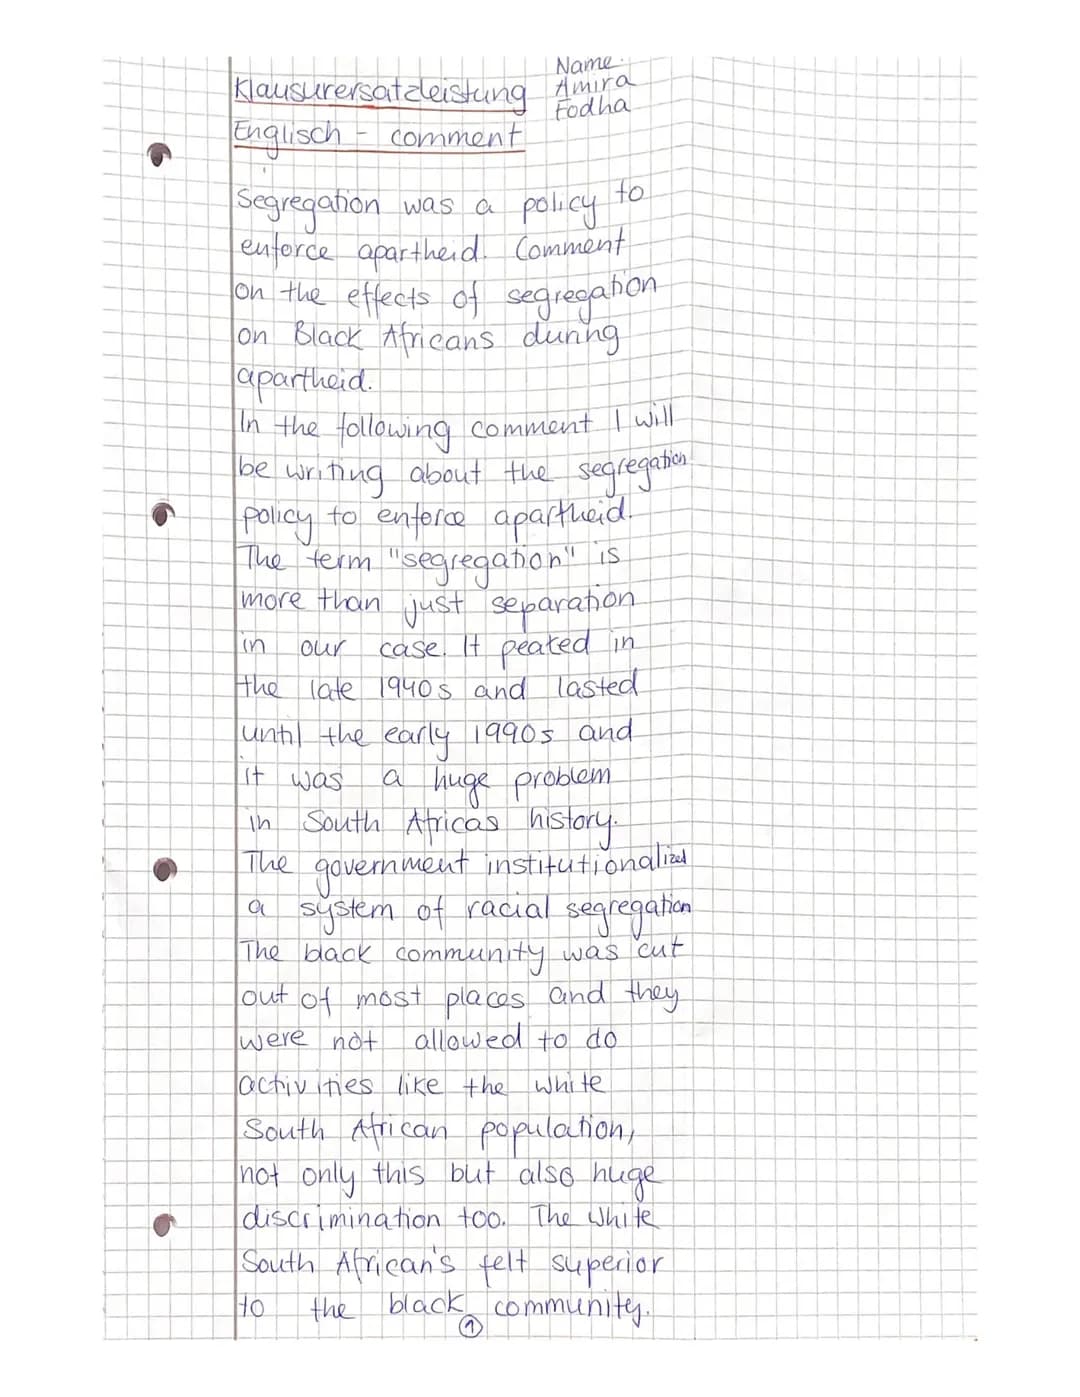 Name:
Klausurersatzleistung Amira
Fodha
Englisch - comment
Segregation was a policy to
enforce apartheid. Comment
on the effects of segregation
on Black Africans during
apartheid.
In the following comment I will
be writing about the segregation
policy to enforce apartheid.
The term "segregation" is
more than just separation
in our case. It peaked in
the late 1940s and lasted
until the early 1990s and
it was a huge problem
in South Africas history.
The government institutionalized
a system of racial segregation
The black community was cut
out of most places and they
were not allowed to do
activities like the white
South African population,
not only this but also huge
discrimination too. The White
South African's felt superior
to the black community.
1